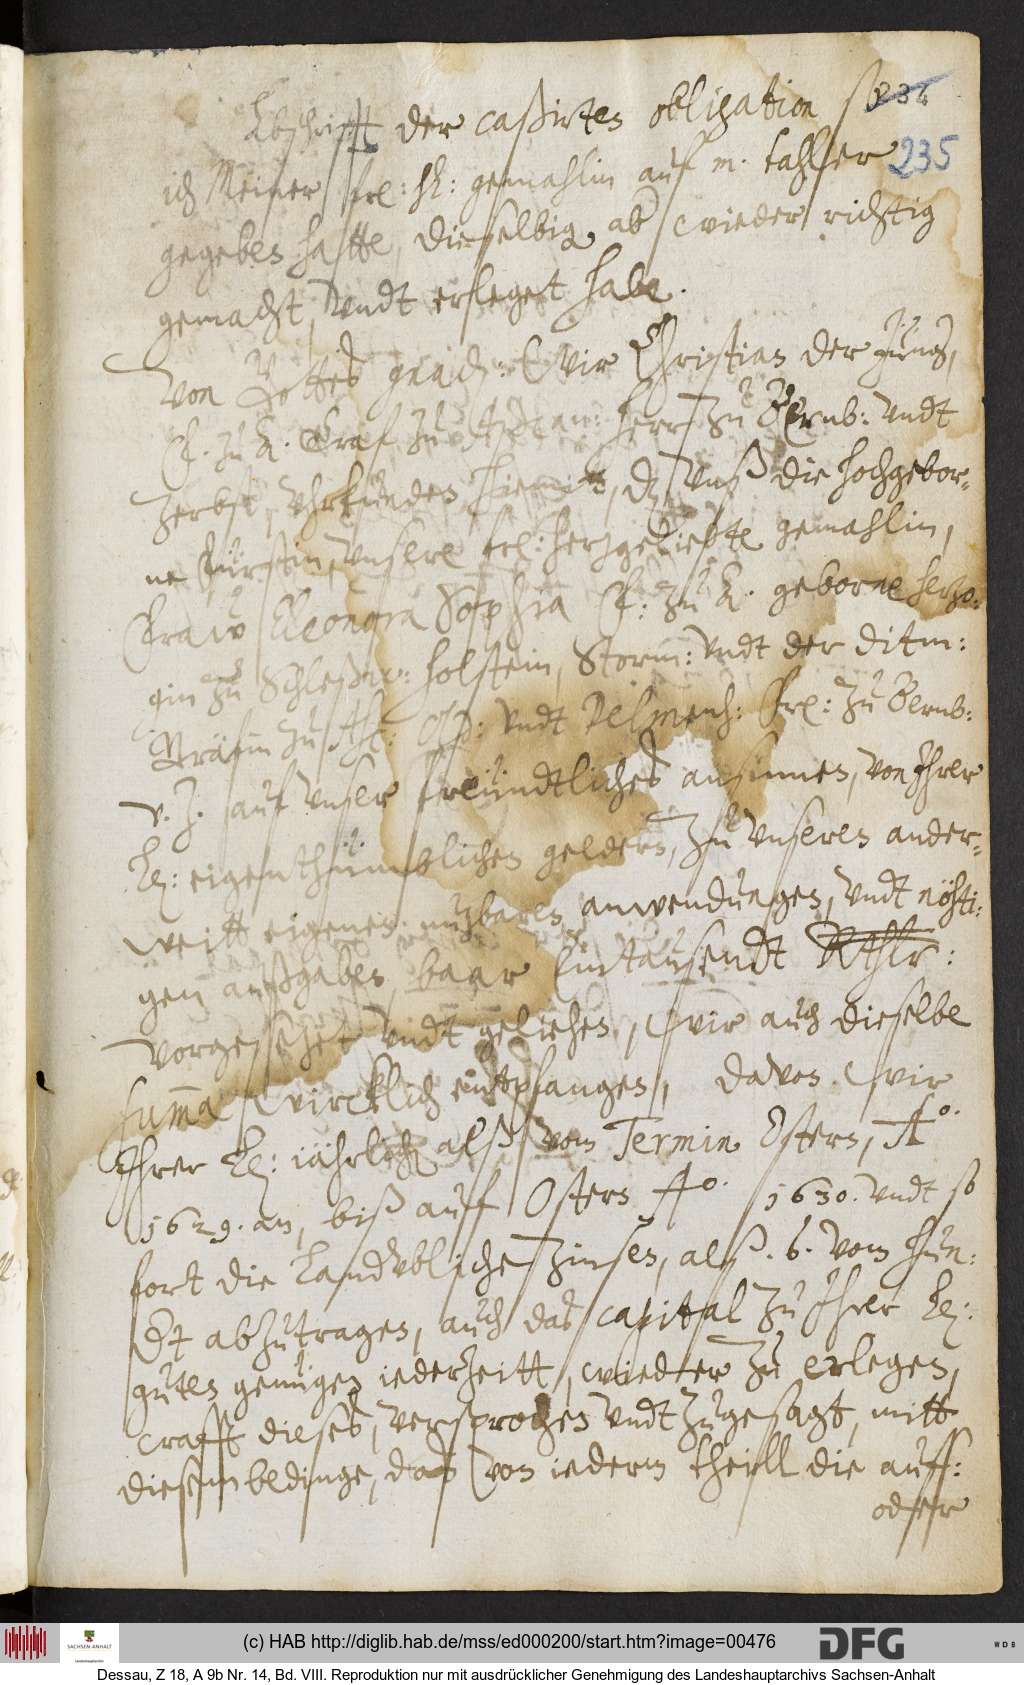 Abschrifft der caßirten obligation so 234
ich Meiner frl: hl: gemahlin auf m. tahler 235
gegeben hatte, dieselbig ab wieder richtig
gemacht, vndt erleget habe.
Von Gottes gnad: Wir Christian der Jüng,
F. zu A. Graf zu Aßcan: herr zu Bernb: vndt
Zerbst, Vhrkunden hiemitt, dz vnß die hochgebor-
ne Fürstin, vnsere frl: herzgeliebte gemahlin,
Fraw Eleonora Sophia F: zu A. geborne herzo:
gin zu Schleßw: holstein, Storm: vndt der Ditm:
Gräfin zu Aſc: Old: vndt Delmenh: Frl: zu Bernb:
v. Z. auf vnser freündtliches ansinnen, von Ihrer
L: eigenthümblichen geldern, zu vnseren ander-
weitt eigenen nuzbaren anwendungen, vndt nöhti:
gen außgaben, baar Eintausendt Rthlr:
vorgesetzet vndt geliehen, wir auch dieselbe
summa wircklich entpfangen, davon wir
Ihrer L: iährlich alß vom Termin Ostern, Ao.
1629. an, biß auff Ostern Ao. 1630. vndt so
fort die Landvbliche Zinsen, alß. 6. vom hun:
dt abzutragen, auch das capital zu Ihrer L:
guten genügen iederzeitt, wiedter zu erlegen,
crafft dieses, versprochen vndt zugesagt, mitt
diesem bedinge, das von iederm theill die auff:
oder
(c) HAB http://diglib.hab.de/mss/ed000200/start.htm?image=00476
SACHSEN-ANHALT
Landeshauptarchiv
DFG
WDB
Dessau, Z 18, A 9b Nr. 14, Bd. VIII. Reproduktion nur mit ausdrücklicher Genehmigung des Landeshauptarchivs Sachsen-Anhalt